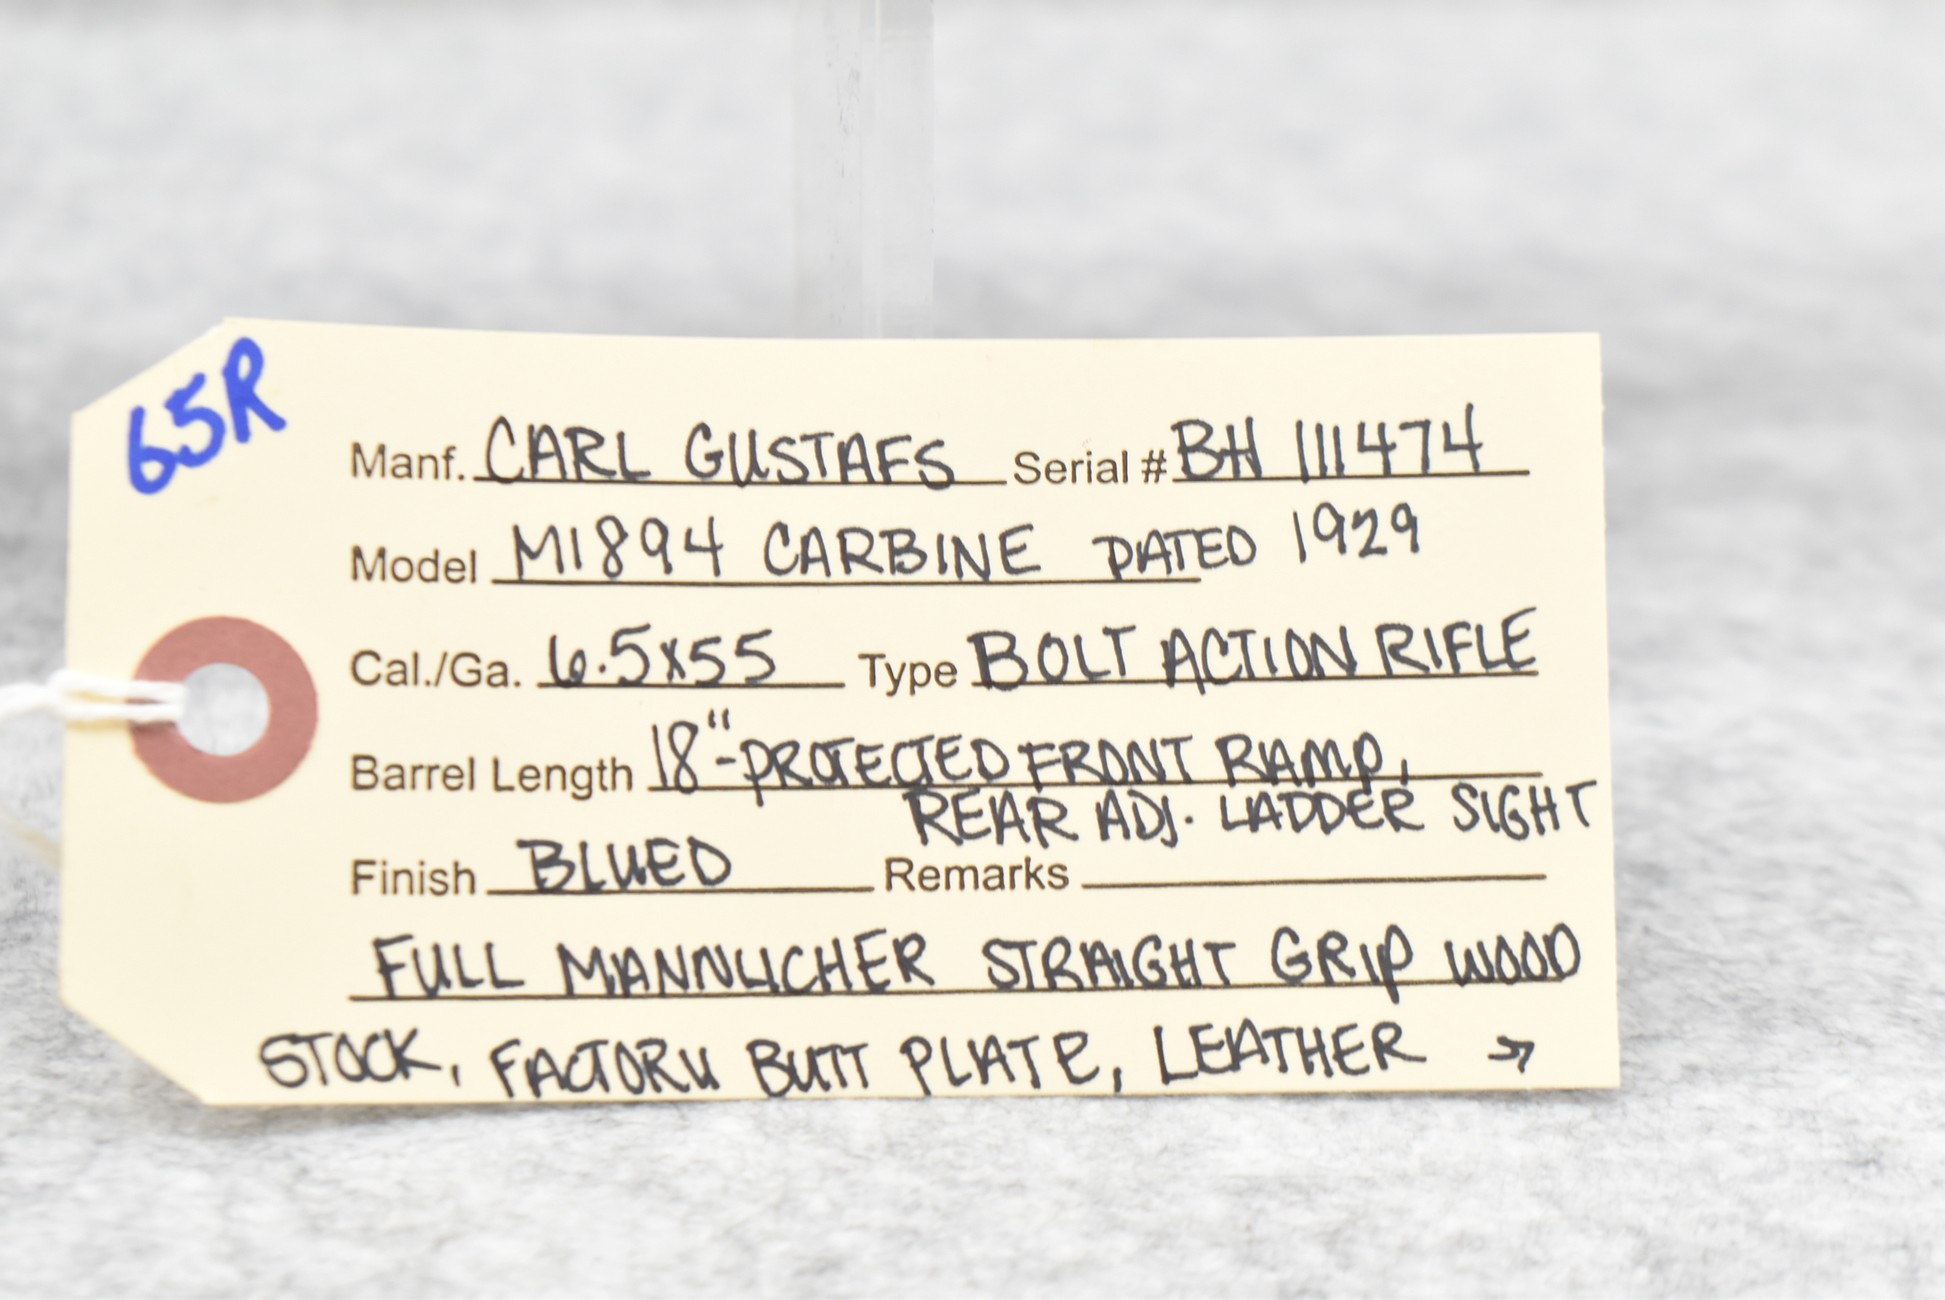 65R
Manf. CARL GUSTAFS Serial # BH 111474
Model M1894 CARBINE DATED 1929
Cal./Ga. 6.5x55 Type BOLT ACTION RIFLE
Barrel Length 18"-PROTECTED FRONT RAMP,
REAR ADJ. LADDER SIGHT
Finish BLUED Remarks
FULL MANNLICHER STRAIGHT GRIP WOOD
STOCK, FACTORY BUTT PLATE, LEATHER →